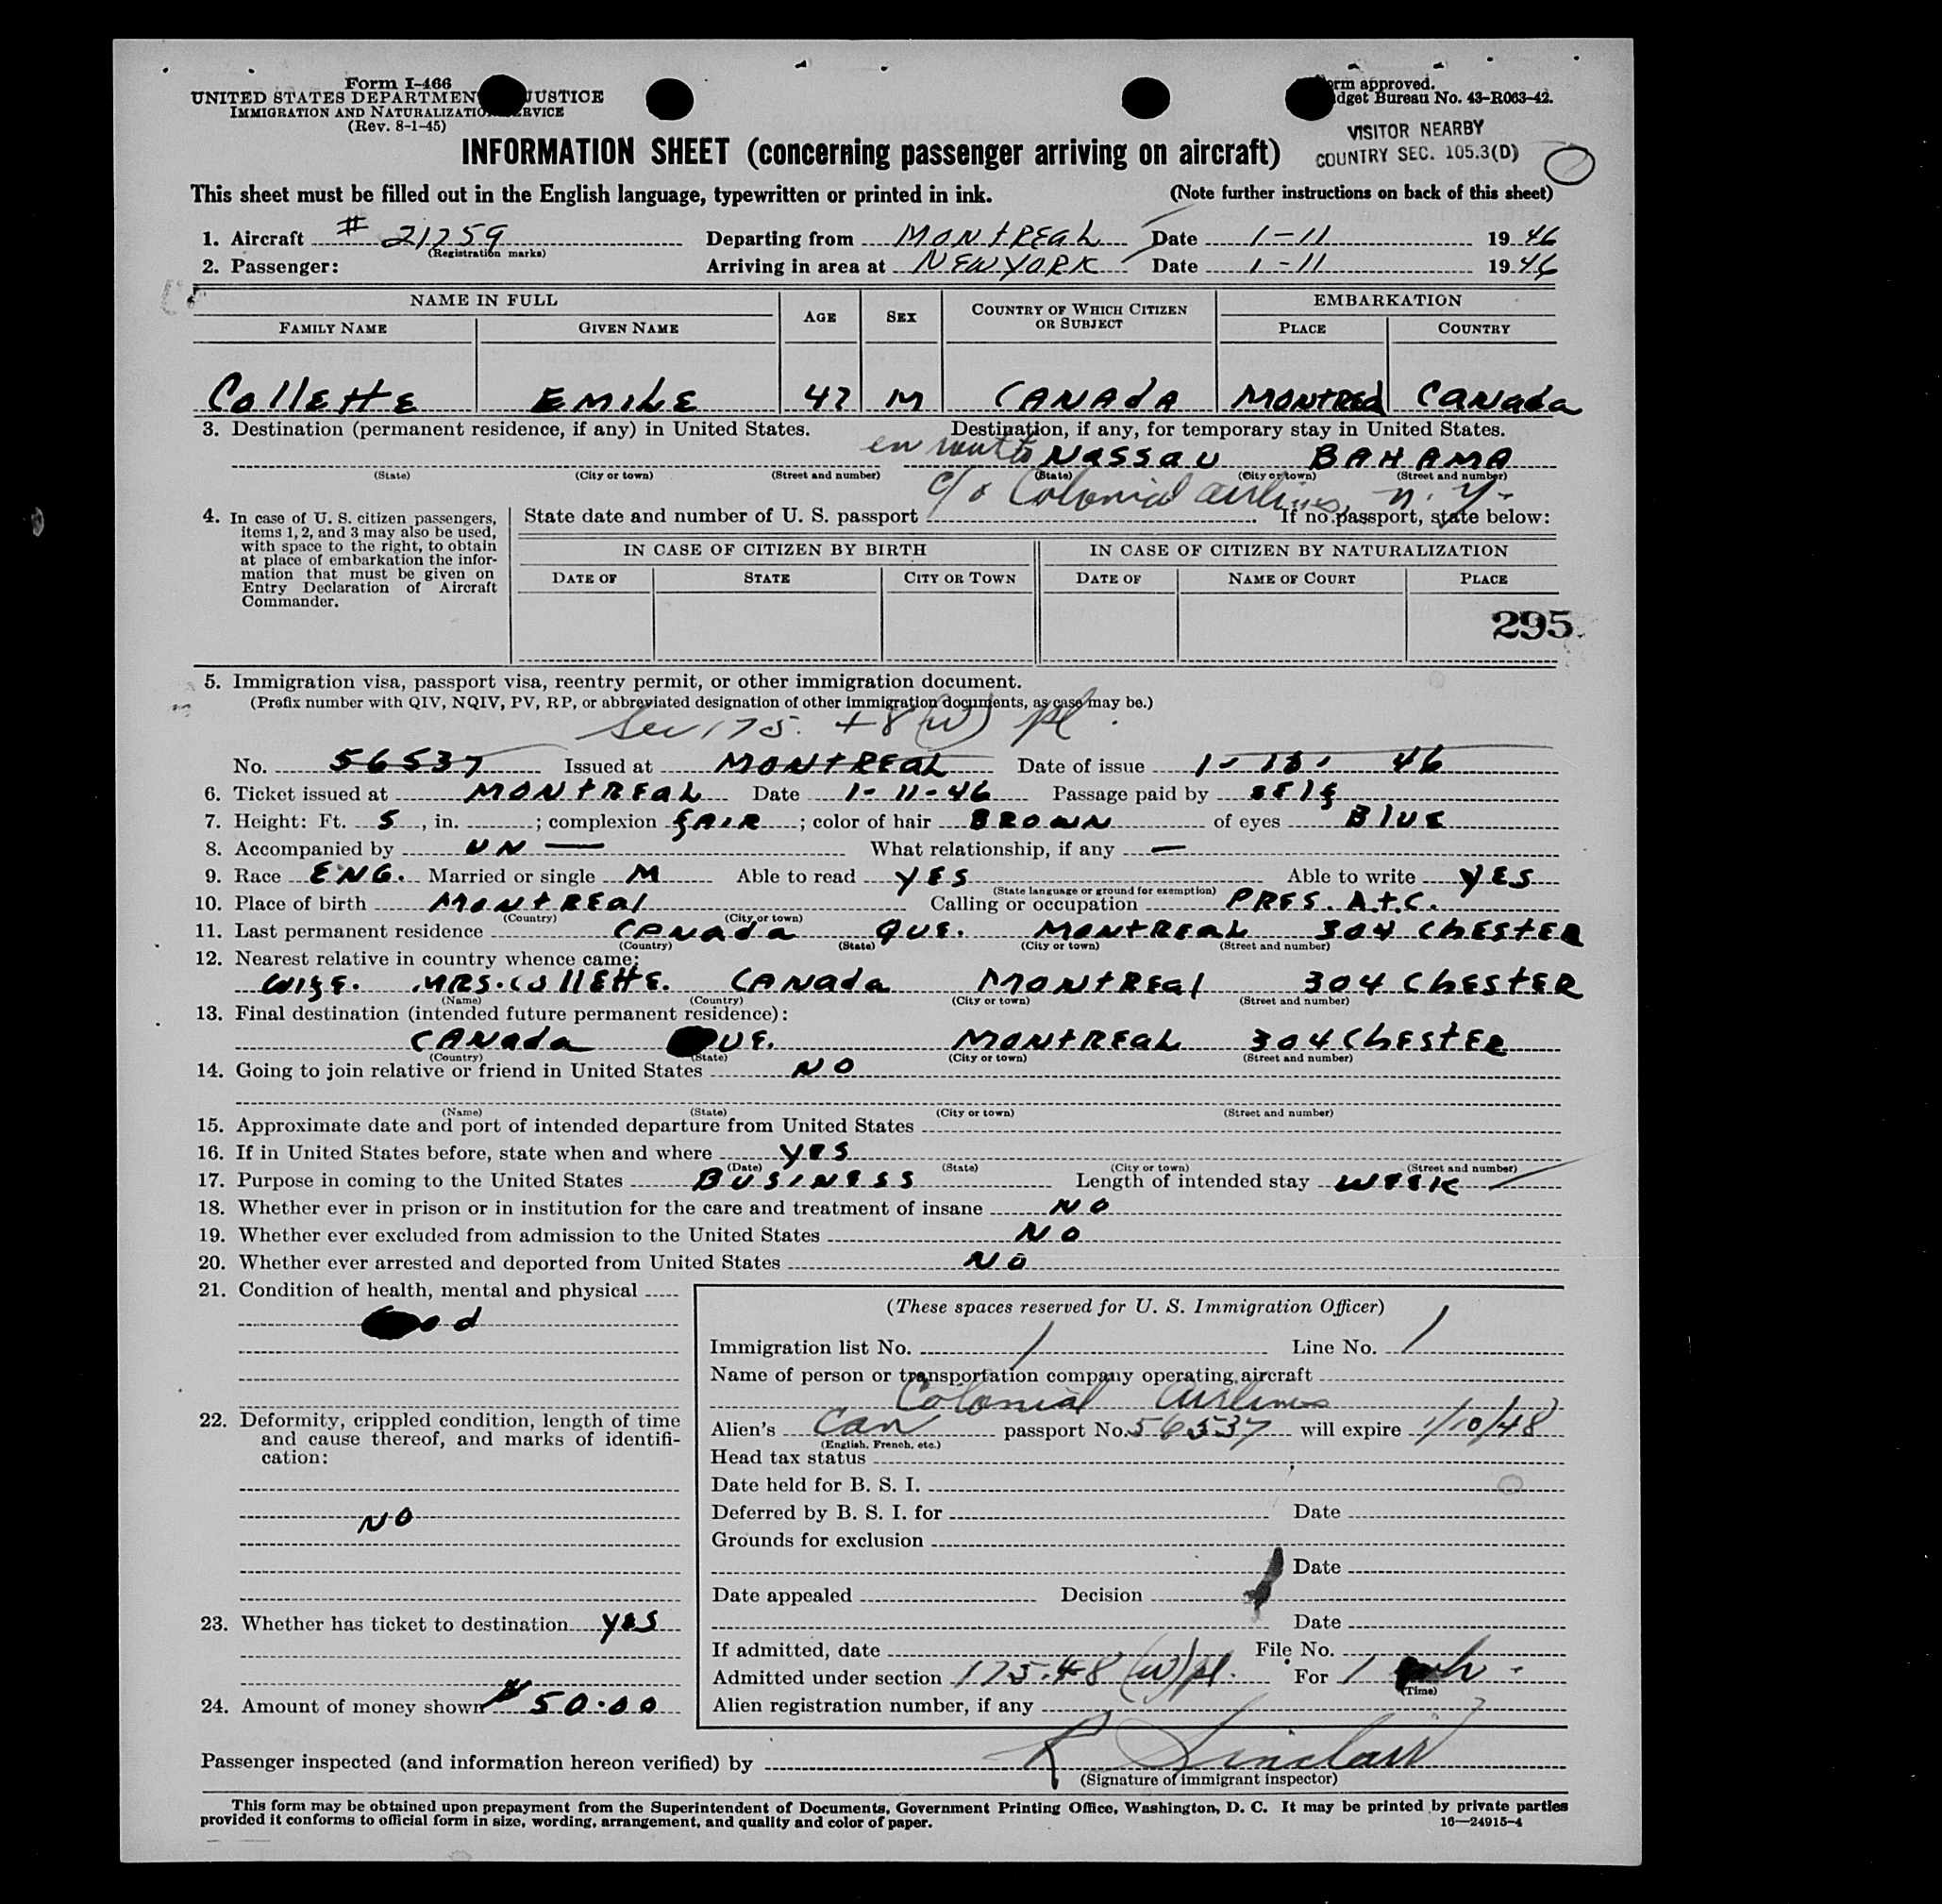 Form I-466
UNITED STATES DEPARTMENT JUSTICE
IMMIGRATION AND NATURALIZATION SERVICE
(Rev. 8-1-45)
Form approved.
Budget Bureau No. 43-R063-42.
VISITOR NEARBY
COUNTRY SEC. 105.3(D)
INFORMATION SHEET (concerning passenger arriving on aircraft)
This sheet must be filled out in the English language, typewritten or printed in ink. (Note further instructions on back of this sheet)
1. Aircraft # 21759 Departing from MONTREAL Date 1-11 1946
(Registration marks)
2. Passenger: Arriving in area at NEW YORK Date 1-11 1946
NAME IN FULL AGE SEX COUNTRY OF WHICH CITIZEN OR SUBJECT EMBARKATION
FAMILY NAME GIVEN NAME PLACE COUNTRY
CollEttE EMILE 47 M CANADA MONTREAL CANADA
3. Destination (permanent residence, if any) in United States. Destination, if any, for temporary stay in United States.
en route to NASSAU BAHAMA
(State) (City or town) (Street and number) (State) (City or town) (Street and number)
c/o Colonial Airlines, N.Y.
4. In case of U. S. citizen passengers, items 1, 2, and 3 may also be used, with space to the right, to obtain at place of embarkation the information that must be given on Entry Declaration of Aircraft Commander.
State date and number of U. S. passport If no passport, state below:
IN CASE OF CITIZEN BY BIRTH IN CASE OF CITIZEN BY NATURALIZATION
DATE OF STATE CITY OR TOWN DATE OF NAME OF COURT PLACE
295
5. Immigration visa, passport visa, reentry permit, or other immigration document.
(Prefix number with QIV, NQIV, PV, RP, or abbreviated designation of other immigration documents, as case may be.)
Sec 175.48(w) pl.
No. 56537 Issued at MONTREAL Date of issue 1-13-46
6. Ticket issued at MONTREAL Date 1-11-46 Passage paid by SElf
7. Height: Ft. 5, in. ; complexion fAIR ; color of hair BROWN of eyes BlUE
8. Accompanied by UN — What relationship, if any —
9. Race ENG. Married or single M Able to read YES Able to write YES
(State language or ground for exemption)
10. Place of birth MONTREAL Calling or occupation PRES. A.T.C.
(Country) (City or town)
11. Last permanent residence CANADA QUE. MONTREAL 304 CHESTER
(Country) (State) (City or town) (Street and number)
12. Nearest relative in country whence came:
WIfE. MRS. COllEttE. CANADA MONTREAL 304 CHESTER
(Name) (Country) (City or town) (Street and number)
13. Final destination (intended future permanent residence):
CANADA QUE. MONTREAL 304 CHESTER
(Country) (State) (City or town) (Street and number)
14. Going to join relative or friend in United States NO
(Name) (State) (City or town) (Street and number)
15. Approximate date and port of intended departure from United States
16. If in United States before, state when and where YES
(Date) (State) (City or town) (Street and number)
17. Purpose in coming to the United States BUSINESS Length of intended stay WEEK
18. Whether ever in prison or in institution for the care and treatment of insane NO
19. Whether ever excluded from admission to the United States NO
20. Whether ever arrested and deported from United States NO
21. Condition of health, mental and physical
Good
22. Deformity, crippled condition, length of time and cause thereof, and marks of identification:
NO
23. Whether has ticket to destination YES
24. Amount of money shown $50.00
(These spaces reserved for U. S. Immigration Officer)
Immigration list No. 1 Line No. 1
Name of person or transportation company operating aircraft
Colonial Airlines
Alien's Can passport No. 56537 will expire 1/10/48
(English, French, etc.)
Head tax status
Date held for B. S. I.
Deferred by B. S. I. for Date
Grounds for exclusion
Date
Date appealed Decision
Date
If admitted, date File No.
Admitted under section 175.48 (w) pl. For 1 wk.
(Time)
Alien registration number, if any
Passenger inspected (and information hereon verified) by R Sinclair
(Signature of immigrant inspector)
This form may be obtained upon prepayment from the Superintendent of Documents, Government Printing Office, Washington, D. C. It may be printed by private parties
provided it conforms to official form in size, wording, arrangement, and quality and color of paper. 16—24915-4